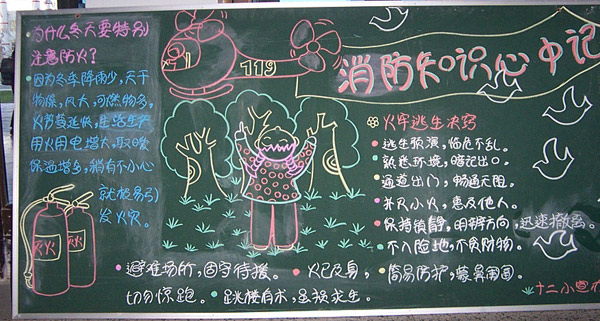 为什么冬天要特别
注意防火?
因为冬季降雨少,天干
物燥,风大,可燃物多。
火势蔓延快,生活生产
用火用电增大,取暖
保温增多,稍有不小心
就极易引
发火灾。
灭火
灭火
119
消防知识心中记
火牢逃生决窍
逃生预演,临危不乱。
熟悉环境,暗记出口。
通道出门,畅通无阻。
扑灭小火,惠及他人。
保持镇静,明辨方向,迅速撤离。
不入险地,不贪财物。
简易防护,蒙鼻匍匐。
避难场所,固守待援。
火已及身,
切勿惊跑。
跳楼有术,虽损求生。
十二小